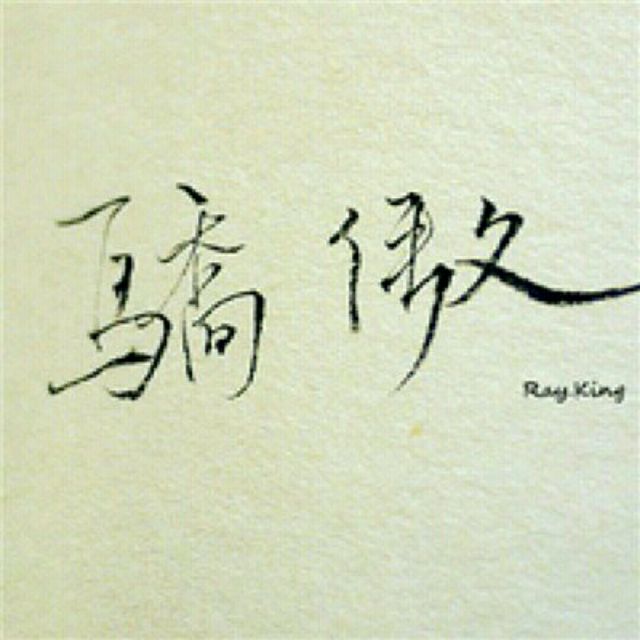 骄傲
Ray.King